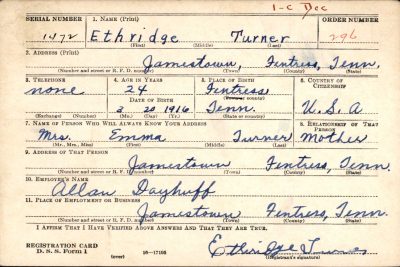 1-C Dec
SERIAL NUMBER 1. NAME (Print) ORDER NUMBER
1472 Ethridge Turner 296
(First) (Middle) (Last)
2. ADDRESS (Print)
Jamestown, Fentress, Tenn.
(Number and street or R. F. D. number) (Town) (County) (State)
3. TELEPHONE 4. AGE IN YEARS 5. PLACE OF BIRTH 6. COUNTRY OF CITIZENSHIP
none 24 Fentress
DATE OF BIRTH (Town or county)
3 20 1916 Tenn. U.S.A
(Exchange) (Number) (Mo.) (Day) (Yr.) (State or country)
7. NAME OF PERSON WHO WILL ALWAYS KNOW YOUR ADDRESS 8. RELATIONSHIP OF THAT PERSON
Mrs. Emma Turner Mother
(Mr., Mrs., Miss) (First) (Middle) (Last)
9. ADDRESS OF THAT PERSON
Jamestown Fentress, Tenn.
(Number and street or R. F. D. number) (Town) (County) (State)
10. EMPLOYER'S NAME
Allan Dayhuff
11. PLACE OF EMPLOYMENT OR BUSINESS
Jamestown Fentress, Tenn.
(Number and street or R. F. D. number) (Town) (County) (State)
I AFFIRM THAT I HAVE VERIFIED ABOVE ANSWERS AND THAT THEY ARE TRUE.
REGISTRATION CARD
D. S. S. Form 1 (over) 16—17105 Ethridge Turner
(Registrant's signature)